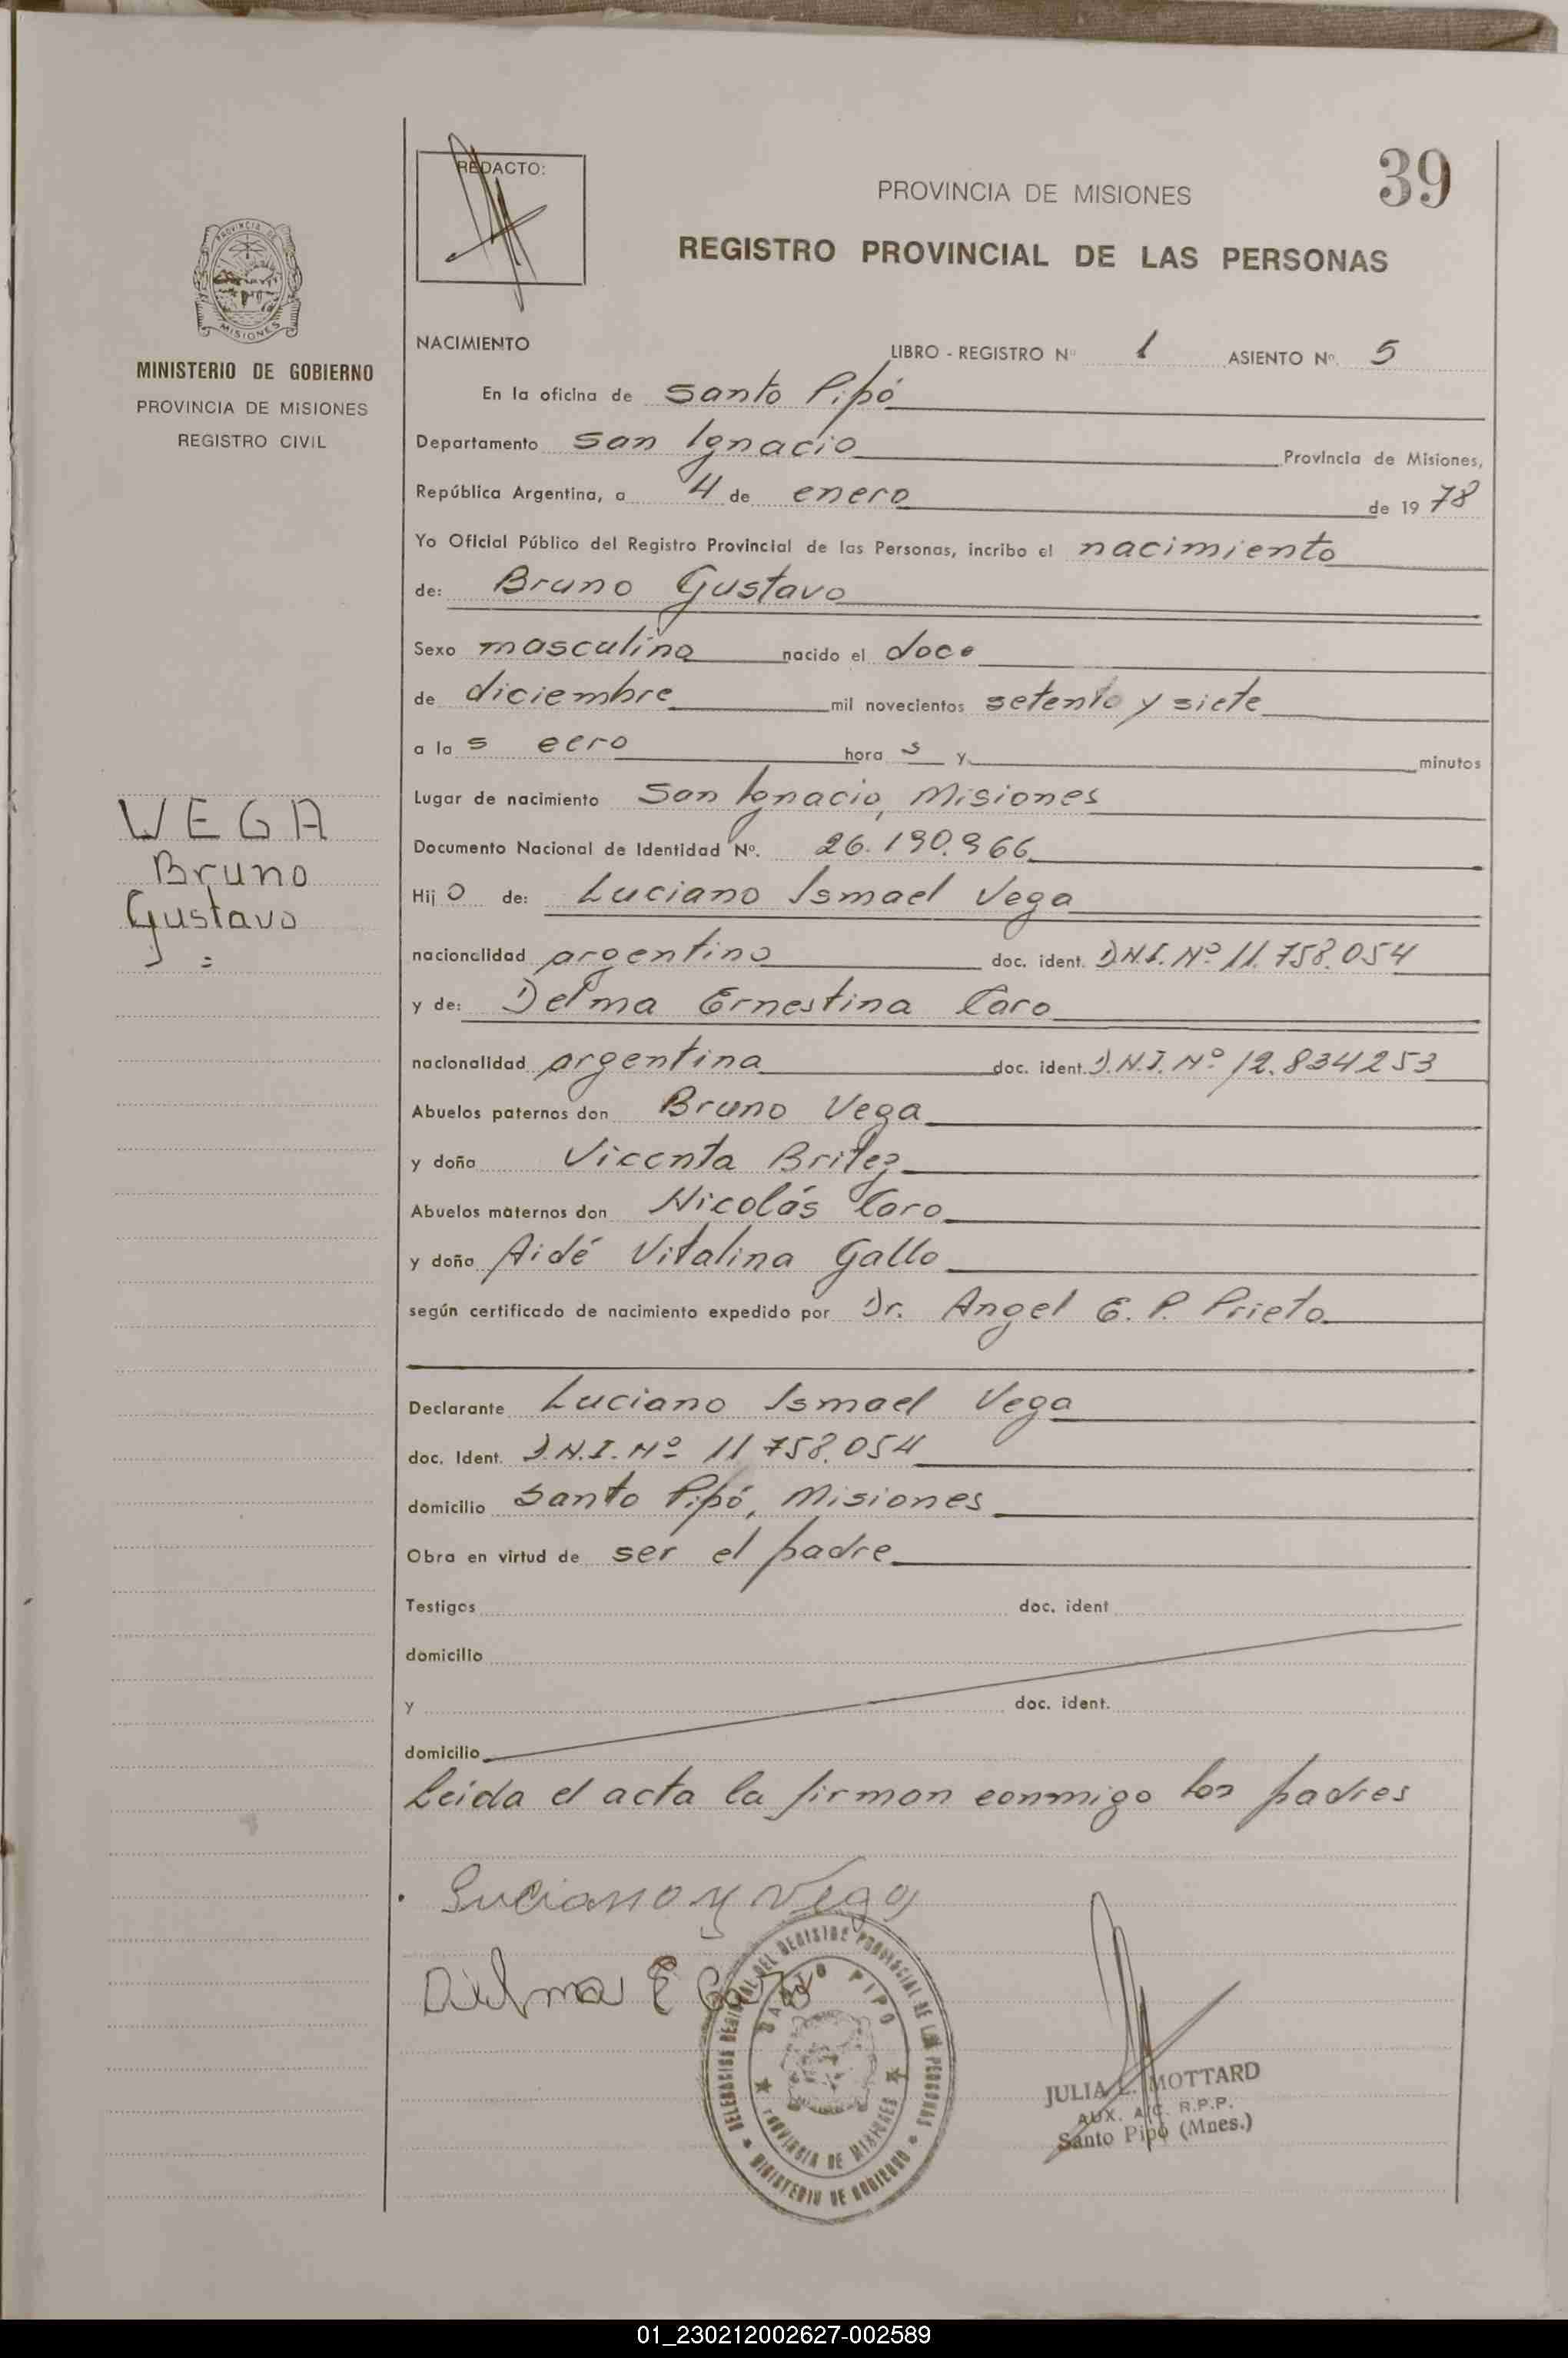 39
REDACTO:
PROVINCIA DE MISIONES
REGISTRO PROVINCIAL DE LAS PERSONAS
PROVINCIA DE
MISIONES
MINISTERIO DE GOBIERNO
PROVINCIA DE MISIONES
REGISTRO CIVIL
NACIMIENTO
LIBRO - REGISTRO Nº 1 ASIENTO Nº. 5
En la oficina de Santo Pipó
Departamento San Ignacio Provincia de Misiones,
República Argentina, a 4 de enero de 1978
Yo Oficial Público del Registro Provincial de las Personas, incribo el nacimiento
de: Bruno Gustavo
Sexo masculino nacido el doce
de diciembre mil novecientos setenta y siete
a las cero horas y minutos
Lugar de nacimiento San Ignacio, Misiones
WEGA
Bruno
Gustavo
Documento Nacional de Identidad Nº. 26.190.966
Hijo de: Luciano Ismael Vega
nacionalidad argentino doc. ident. D.N.I. Nº 11.758.054
y de: Delma Ernestina Caro
nacionalidad argentina doc. ident. D.N.I. Nº 12.834253
Abuelos paternos don Bruno Vega
y doña Vicenta Britez
Abuelos maternos don Nicolás Caro
y doña Aidé Vitalina Gallo
según certificado de nacimiento expedido por Dr. Angel E. P. Prieto
Declarante Luciano Ismael Vega
doc. Ident. D.N.I. Nº 11758.054
domicilio Santo Pipó, Misiones
Obra en virtud de ser el padre
Testigos doc. ident
domicilio
y doc. ident.
domicilio
Leída el acta la firman conmigo los padres
Luciano Vega
Delma E Caro
DELEGACION REGIONAL DEL REGISTRO PROVINCIAL DE LAS PERSONAS
SANTO PIPO
PROVINCIA DE MISIONES
MINISTERIO DE GOBIERNO
JULIA L. MOTTARD
AUX. A/C. R.P.P.
Santo Pipó (Mnes.)
01_230212002627-002589